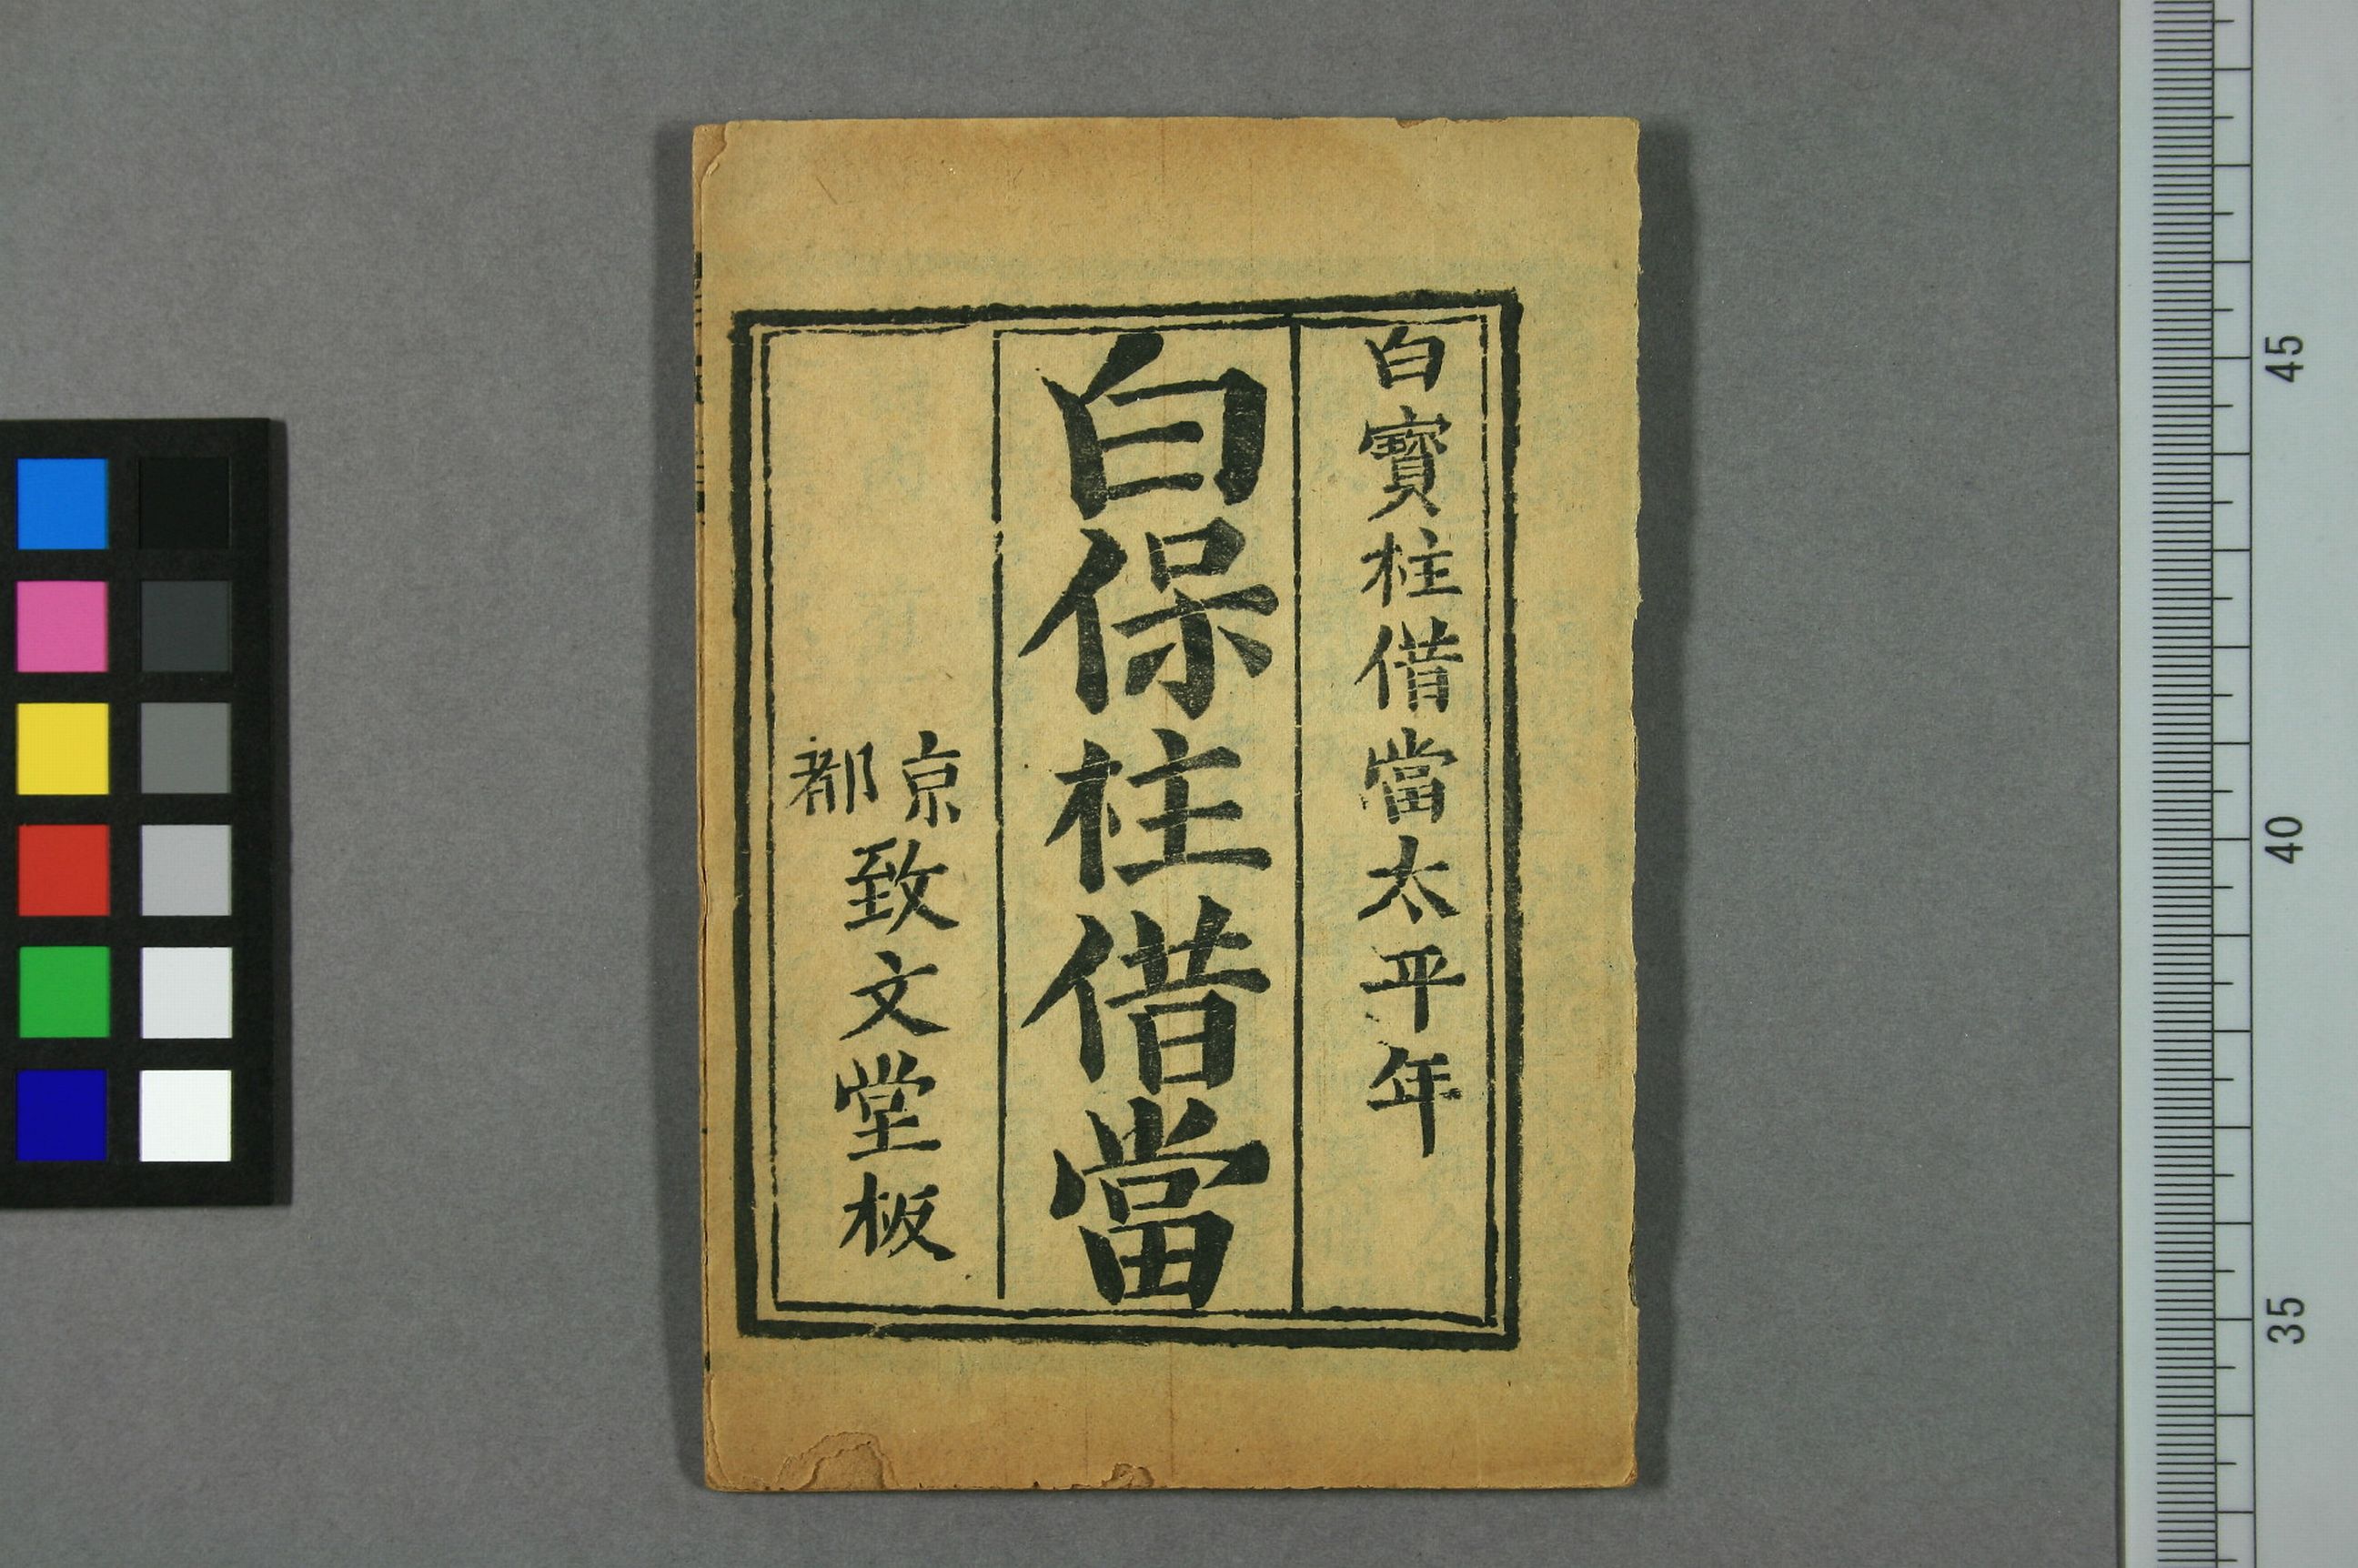 白寳柱借當太平年
白保柱借當
京都
致文堂板
45
40
35